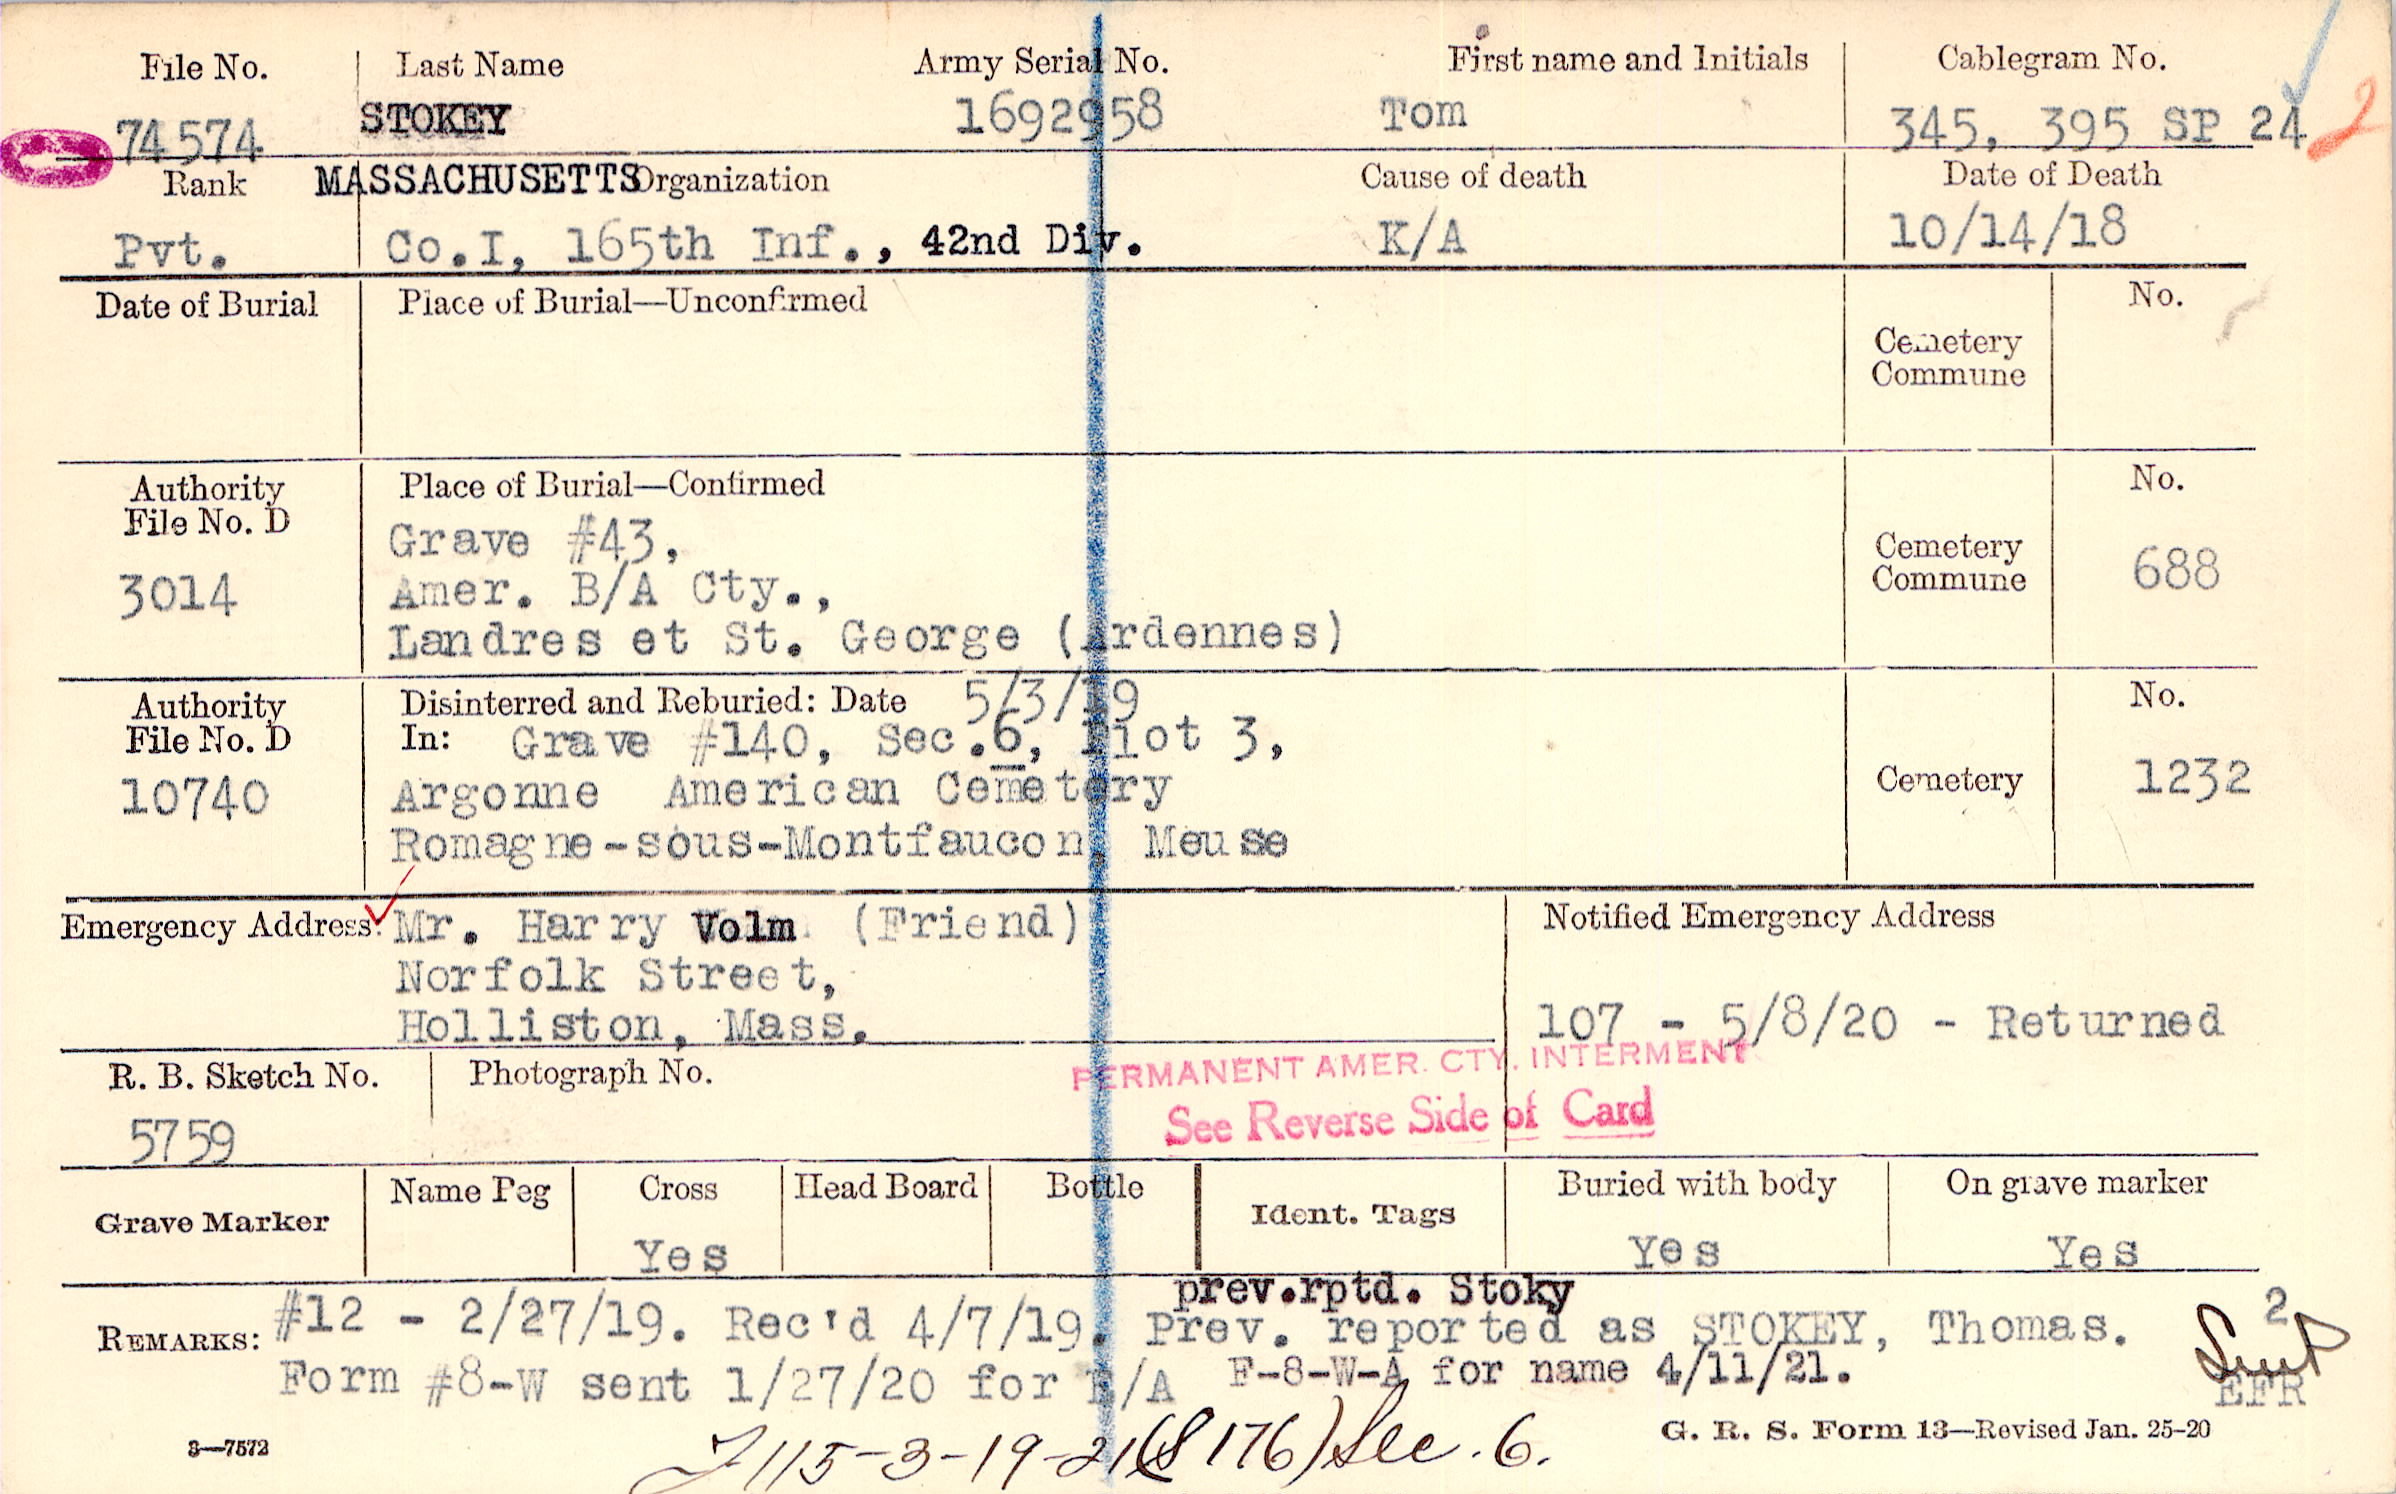 File No. Last Name Army Serial No. First name and Initials Cablegram No.
74574 STOKEY 1692958 Tom 345, 395 SP 24 2
Rank MASSACHUSETTS Organization Cause of death Date of Death
Pvt. Co.I, 165th Inf., 42nd Div. K/A 10/14/18
Date of Burial Place of Burial—Unconfirmed No.
Cemetery
Commune
Authority Place of Burial—Confirmed No.
File No. D
Grave #43,
3014 Amer. B/A Cty., Cemetery 688
Commune
Landres et St. George (Ardennes)
Authority Disinterred and Reburied: Date 5/3/19 No.
File No. D In: Grave #140, Sec.6, Plot 3,
10740 Argonne American Cemetery Cemetery 1232
Romagne-sous-Montfaucon, Meuse
Emergency Address: Mr. Harry Volm (Friend) Notified Emergency Address
Norfolk Street,
Holliston, Mass. 107 - 5/8/20 - Returned
R. B. Sketch No. Photograph No. PERMANENT AMER. CTY. INTERMENT
See Reverse Side of Card
5759
Grave Marker Name Peg Cross Head Board Bottle Ident. Tags Buried with body On grave marker
Yes Yes Yes
prev.rptd. Stoky
REMARKS: #12 - 2/27/19. Rec'd 4/7/19. Prev. reported as STOKEY, Thomas. 2
Form #8-W sent 1/27/20 for E/A F-8-W-A for name 4/11/21. EFR
3—7572 G. R. S. Form 13—Revised Jan. 25-20
115-3-19-21 (8176) Sec. 6.